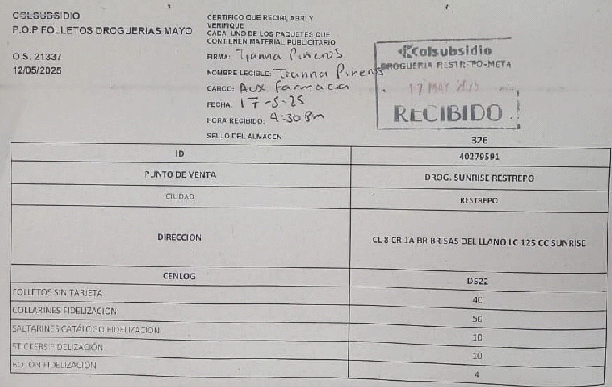 COLSUBSIDIO
P.O.P FOLLETOS DROGUERIAS MAYO
O.S. 21337
12/05/2025
CERTIFICO QUE RECIBI, ABRI Y
VERIFIQUE
CADA UNO DE LOS PAQUETES QUE
CONTIENEN MATERIAL PUBLICITARIO
FIRMA:
NOMBRE LEGIBLE:
CARGO: Aux farmacia
FECHA: 17-5-25
HORA RECIBIDO: 4:30 Pm
SELLO DEL ALMACEN
Colsubsidio
DROGUERIA RESTREPO-META
17 MAY 2025
RECIBIDO
376
ID 40279591
PUNTO DE VENTA DROG. SUNRISE RESTREPO
CIUDAD RESTREPO
DIRECCION CL 8 CR 1A BR BRISAS DEL LLANO LC 125 CC SUNRISE
CENLOG DS22
FOLLETOS SIN TARJETA 40
COLLARINES FIDELIZACION 50
SALTARINES CATALOGO FIDELIZACION 10
STICKERS FIDELIZACIÓN 10
BOTON FIDELIZACION 4